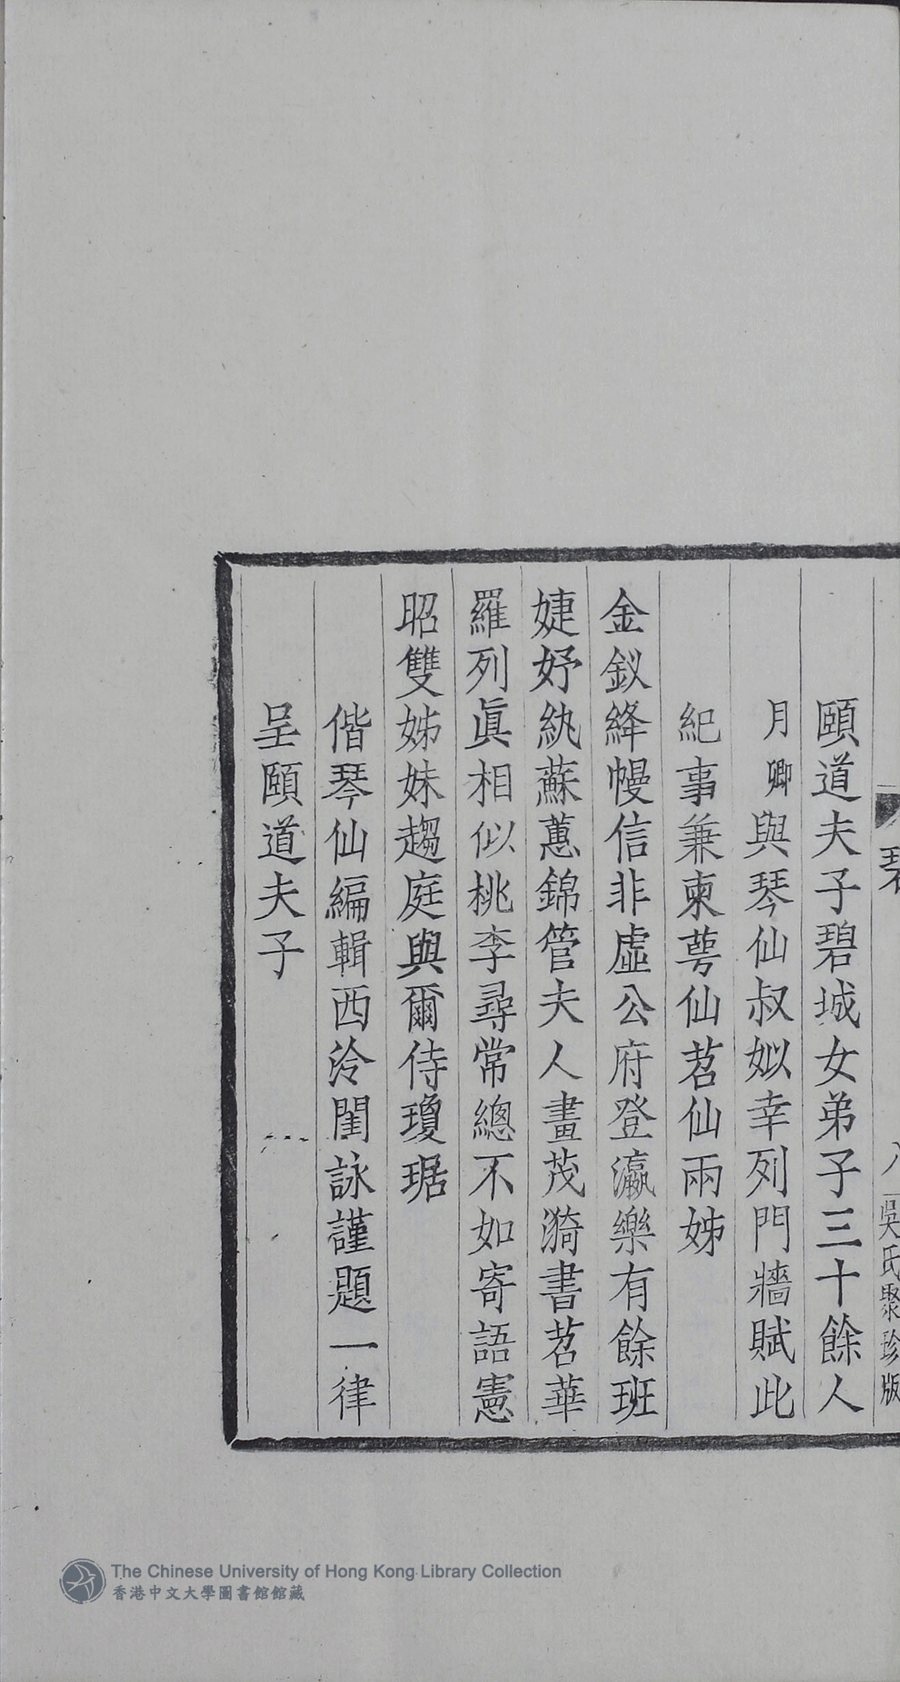 碧
八
吳氏聚珍版
頤道夫子碧城女弟子三十餘人
月卿與琴仙叔姒幸列門牆賦此
紀事兼柬蕚仙苕仙兩姊
金釵絳幔信非虛公府登瀛樂有餘班
婕妤紈蘇蕙錦管夫人畫茂漪書苕華
羅列眞相似桃李尋常總不如寄語憲
昭雙姊妹趨庭與爾侍瓊琚
偕琴仙編輯西泠閨詠謹題一律
呈頤道夫子
The Chinese University of Hong Kong Library Collection
香港中文大學圖書館館藏